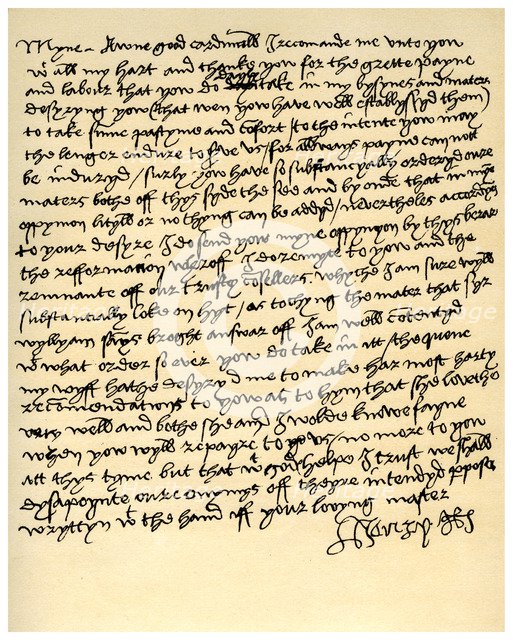 Myne Awne good cardinall I recomande me unto yow
wt all my hart and thanke yow for the grette payne
and labour that yow do dayly take in my bysynes and maters
desyryng yow (that wen yow have well establyssyd them)
to take summe pastyme and cofort to the intente yow may
the lenger endure to serve us / for allways payne can nott
be induryd / surly yow have so substancyally orderyd oure
maters bothe off thys syde the see and byonde that in myne
oppynion lityll or no thyng can be addyd / nevertheles accordyng
to your desyre I do send yow myne oppynyon by thys berar
the refformation wheroff I do remytte to yow and the
remnante off our trusty cosellers whyche I am sure wyll
substantially loke on hyt / as tochyng the mater that syr
wyllyam sayes broght answar off I am well contentyd
wt what order so ever yow do take in itt / the quene
my wyff hathe desyryd me to make har most harty
recomendations to yow as to hym that she lovethe
very well and bothe she and I wolde knowe fayne
when yow wyll repayre to us / no more to yow
att thys tyme but that wt gods helpe I trust we shall
dysapoynte oure enymys off theyre intendyd purpose
wryttyn wt the hand off your lovyng master
Henry